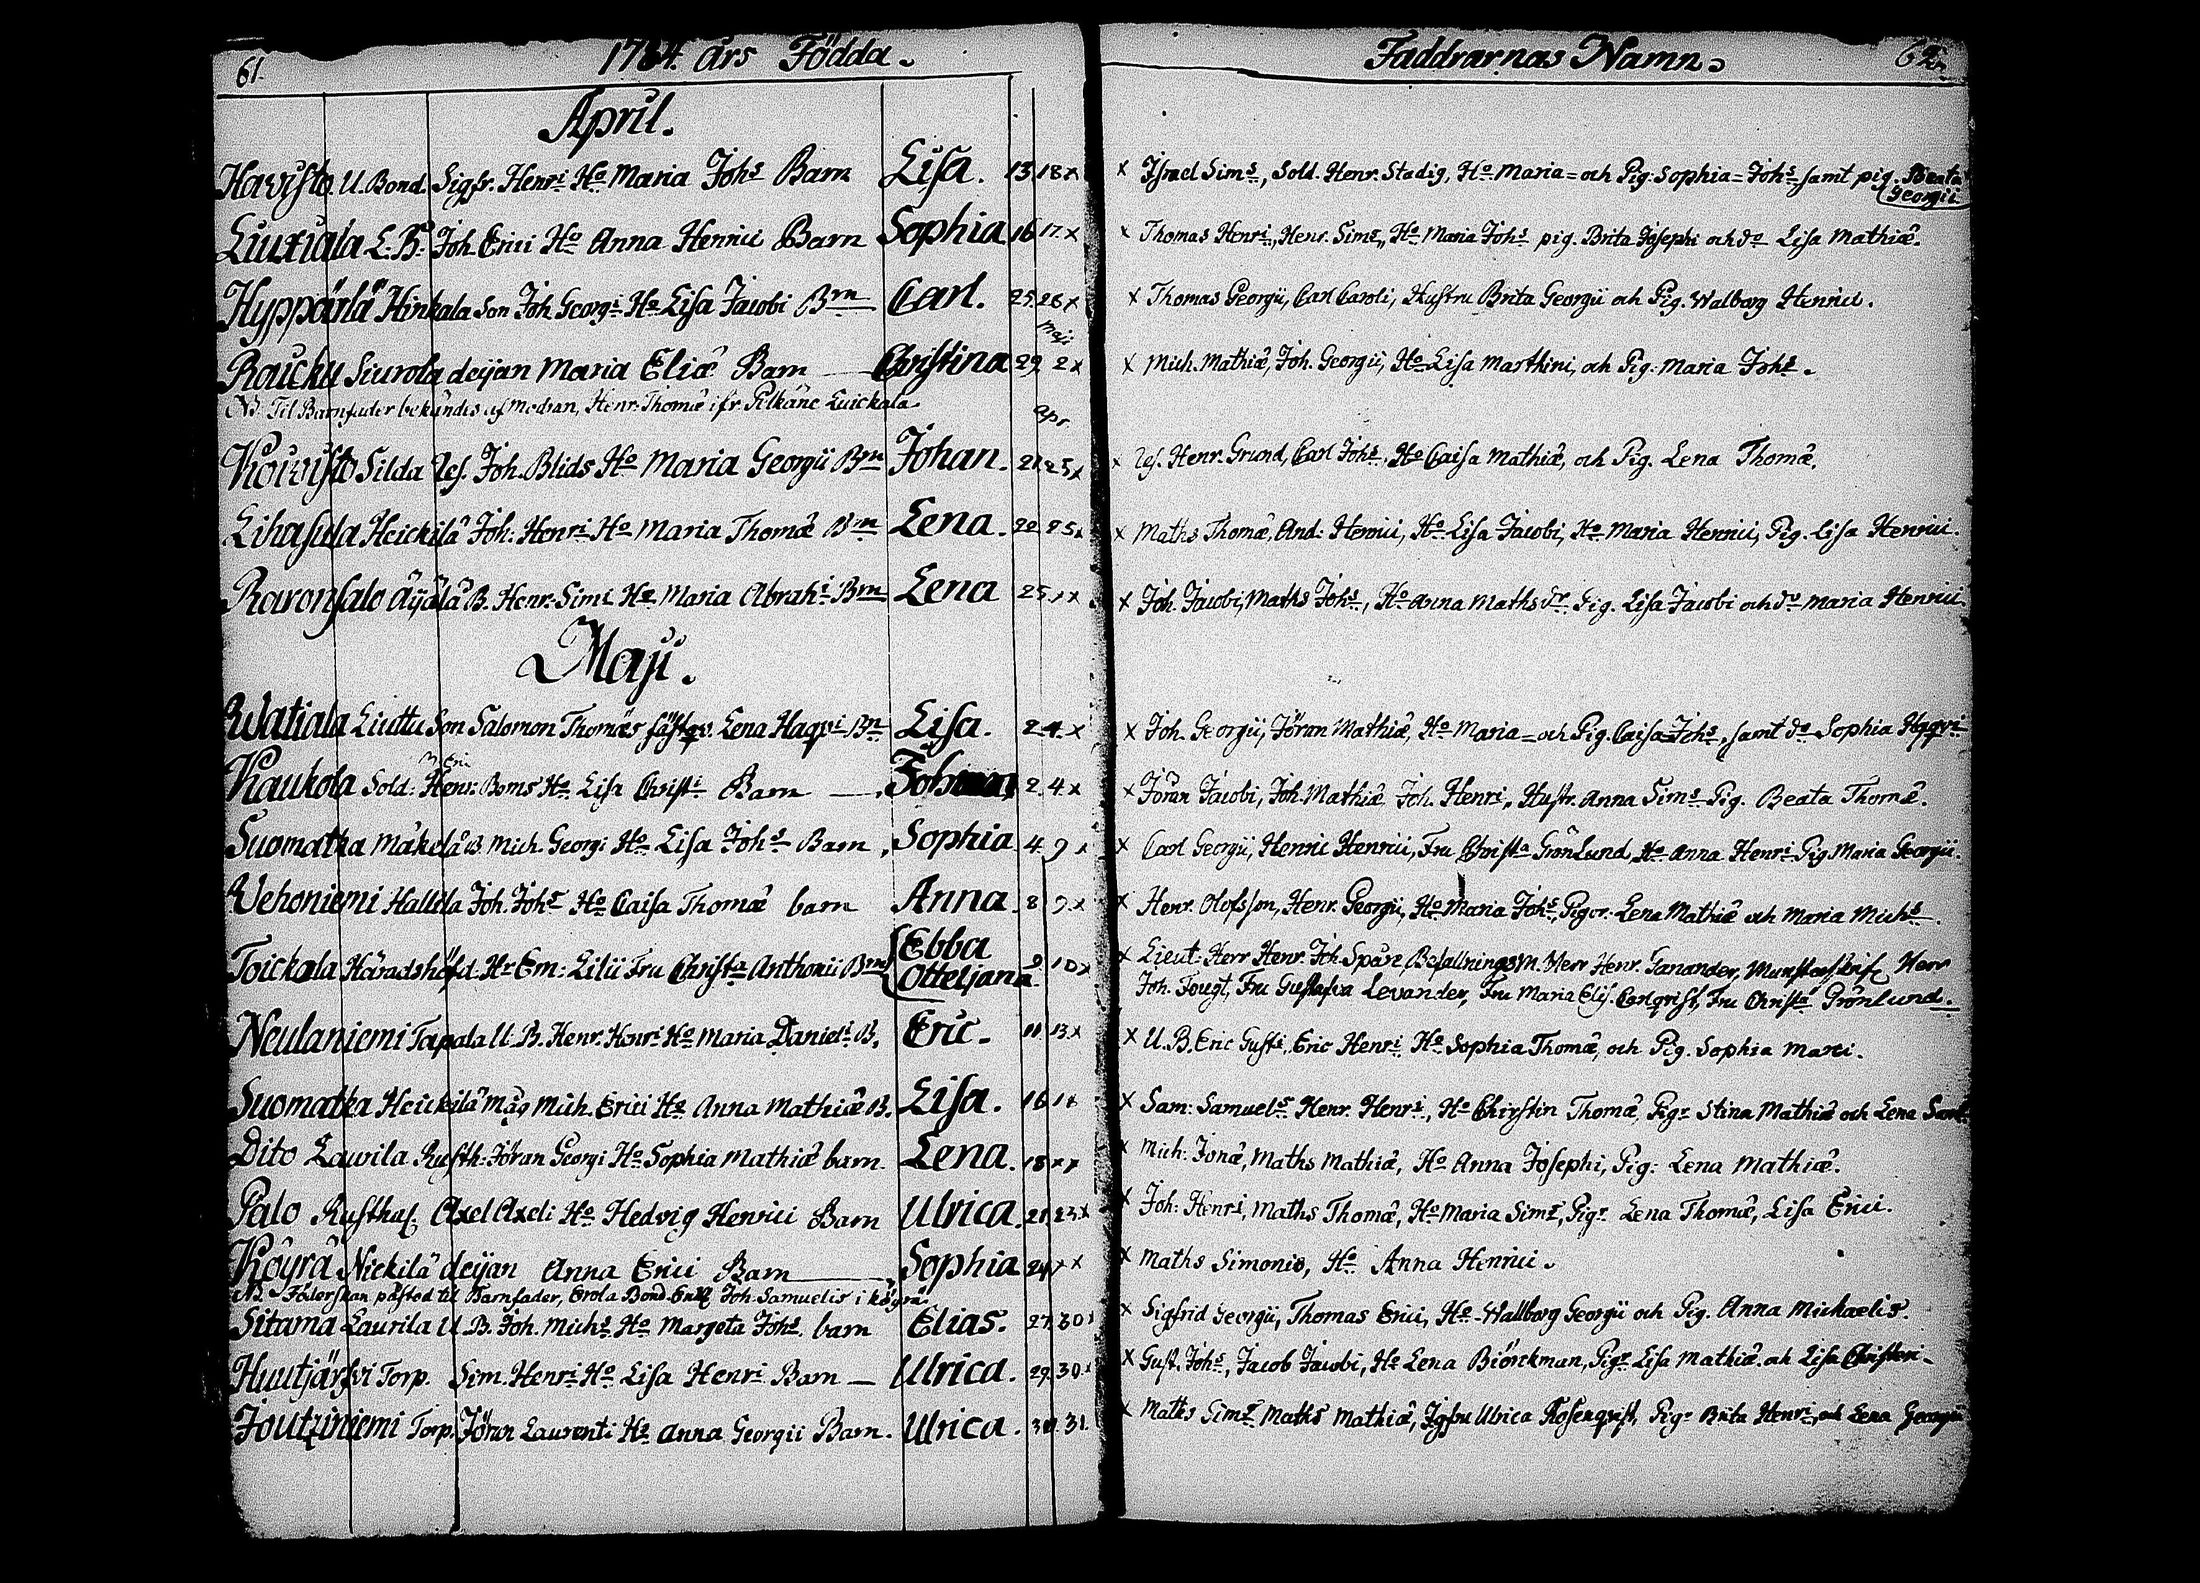 61.
1784. års Födda.
April.
Havisto U. Bond. Sigfr. Henri Ho Maria Johs Barn Lisa. 13. 18 x
Liuxiala L. B. Joh. Erici Ho Anna Henrici Barn Sophia 16 17 x
Hyppärlä Hinkala Son Joh Georgi Ho Lisa Jacobi Brn Carl. 25. 26 x
Maji
Raucku Siurola deijan Maria Eliæ Barn Christina 29. 2 x
NB. Til Barnfader bekändes af modran, Henr. Thomæ ifr. Pelkäne Luickala
Apr.
Kouvisto Silda Joh. Blids Ho Maria Georgii Brn Johan. 21. 25 x
Lihasula Heickilä Joh: Henri Ho Maria Thomæ Brn Lena. 22. 25 x
Raronsalo Äijälä B. Henr. Simi Ho Maria Abrahi Brn Lena 25. x x
Maji.
Watiala Liuttu Son Salomon Thomæs fästeqv. Lena Haqvi Bn Lisa. 2. 4. x
Kaukola Sold: Henr. Boms Ho Lisa Christi Barn 2. 4 x
Suomatka Mäkelä B. Mich. Georgi Ho Lisa Johs Barn, Sophia 4. 9 x
Wehoniemi Hallila Joh. Johs Ho Caisa Thomæ barn Anna. 8 9. x
Toickala Häradshöfd. Hr Em: Lilii Fru Christa Anthonii Brn Ebba 9 10 x
Otteljana
Neulaniemi Tapala U. B. Henr. Henri Ho Maria Danieli B. Eric. 11. 13. x
Suomatka Heickilä Måg Mich. Erici Ho Anna Mathiæ B. Lisa. 16
Dito Lawila Rusth: Jöran Georgi Ho Sophia Mathiæ barn Lena. 18 x x
Palo Rusthål Axel Axeli Ho Hedvig Henrici Barn Ulrica. 21. 23. x
Köyrä Nickilä deijan Anna Erici Barn Sophia 24 x x
NB. Föderskan påstod til Barnfader, Erola Bond. Enkl. Joh. Samuelis i Köyrä
Sitama Laurila U. B. Joh. Michs Ho Margeta Johs barn Elias. 27. 30 x
Huutjärfvi Torp. Sim. Henri Ho Lisa Henri Barn Ulrica. 29. 30 x
Joutziniemi Torp. Jöran Laurenti Ho Anna Georgii Barn. Ulrica. 30. 31.
Faddrarnas Namn.
62.
x Israel Sims, Sold. Henr. Stadig, Ho Maria = och Pig. Sophia = Johs samt pig. Beata
Georgii
x Thomas Henri, Henr. Sims, Ho Maria Johs pig. Brita Josephi och do Lisa Mathiæ.
x Thomas Georgii, Carl Caroli, Hustru Brita Georgii och Pig. Walborg Henrici.
x Mich. Mathiæ, Joh. Georgii, Ho Lisa Marthini, och Pig. Maria Johs.
x Henr. Grund, Carl Johs, Ho Caisa Mathiæ, och Pig. Lena Thomæ.
x Maths Thomæ, And: Henrici, Ho Lisa Jacobi, Ho Maria Henrici, Pig. Lisa Henrici.
x Joh. Jacobi, Maths Johs, Ho Anna Maths dr. Pig. Lisa Jacobi och do Maria Henrici.
x Joh. Georgii, Jöran Mathiæ, Ho Maria = och Pig. Caisa = Johs, samt do Sophia Haqvi
x Jöran Jacobi, Joh. Mathiæ, Joh. Henri, Hustr. Anna Sims Pig. Beata Thomæ.
x Carl Georgii, Henric Henrici, Fru Christa GrönLund, Ho Anna Henri Pig. Maria Georgii.
x Henr. Olofsson, Henr. Georgii, Ho Maria Johs, Pigor. Lena Mathiæ och Maria Michs.
x Lieut. Herr Henr. Joh. Spåre, BefallningsM. Herr Henr. Ganander, Munsterskrif. Herr
Joh. Fougt, Fru Gustafva Levander, Fru Maria Elis. Carlqvist, Fru Christa Grönlund.
x U. B. Eric Gusti, Eric Henri, Ho Sophia Thomæ, och Pig. Sophia Marci.
x Sam: Samuels Henr. Henri, Ho Chirstin Thomæ, Pigr Stina Mathiæ och Lena
x Mich: Jonæ, Maths Mathiæ, Ho Anna Josephi, Pig: Lena Mathiæ.
x Joh: Henri, Maths Thomæ, Ho Maria Sims, Pigr Lena Thomæ, Lisa Erici.
x Maths Simonis, Ho Anna Henrici.
x Sigfrid Georgii, Thomas Erici, Ho Wallborg Georgii och Pig. Anna Michaelis.
x Gust. Johs, Jacob Jacobi, Ho Lena Biörckman, Pigr Lisa Mathiæ och Lisa Christeri
x Maths Sims Maths Mathiæ, Jgfru Ulrica Rosenqvist, Pigr Brita Henri och Lena Georgii